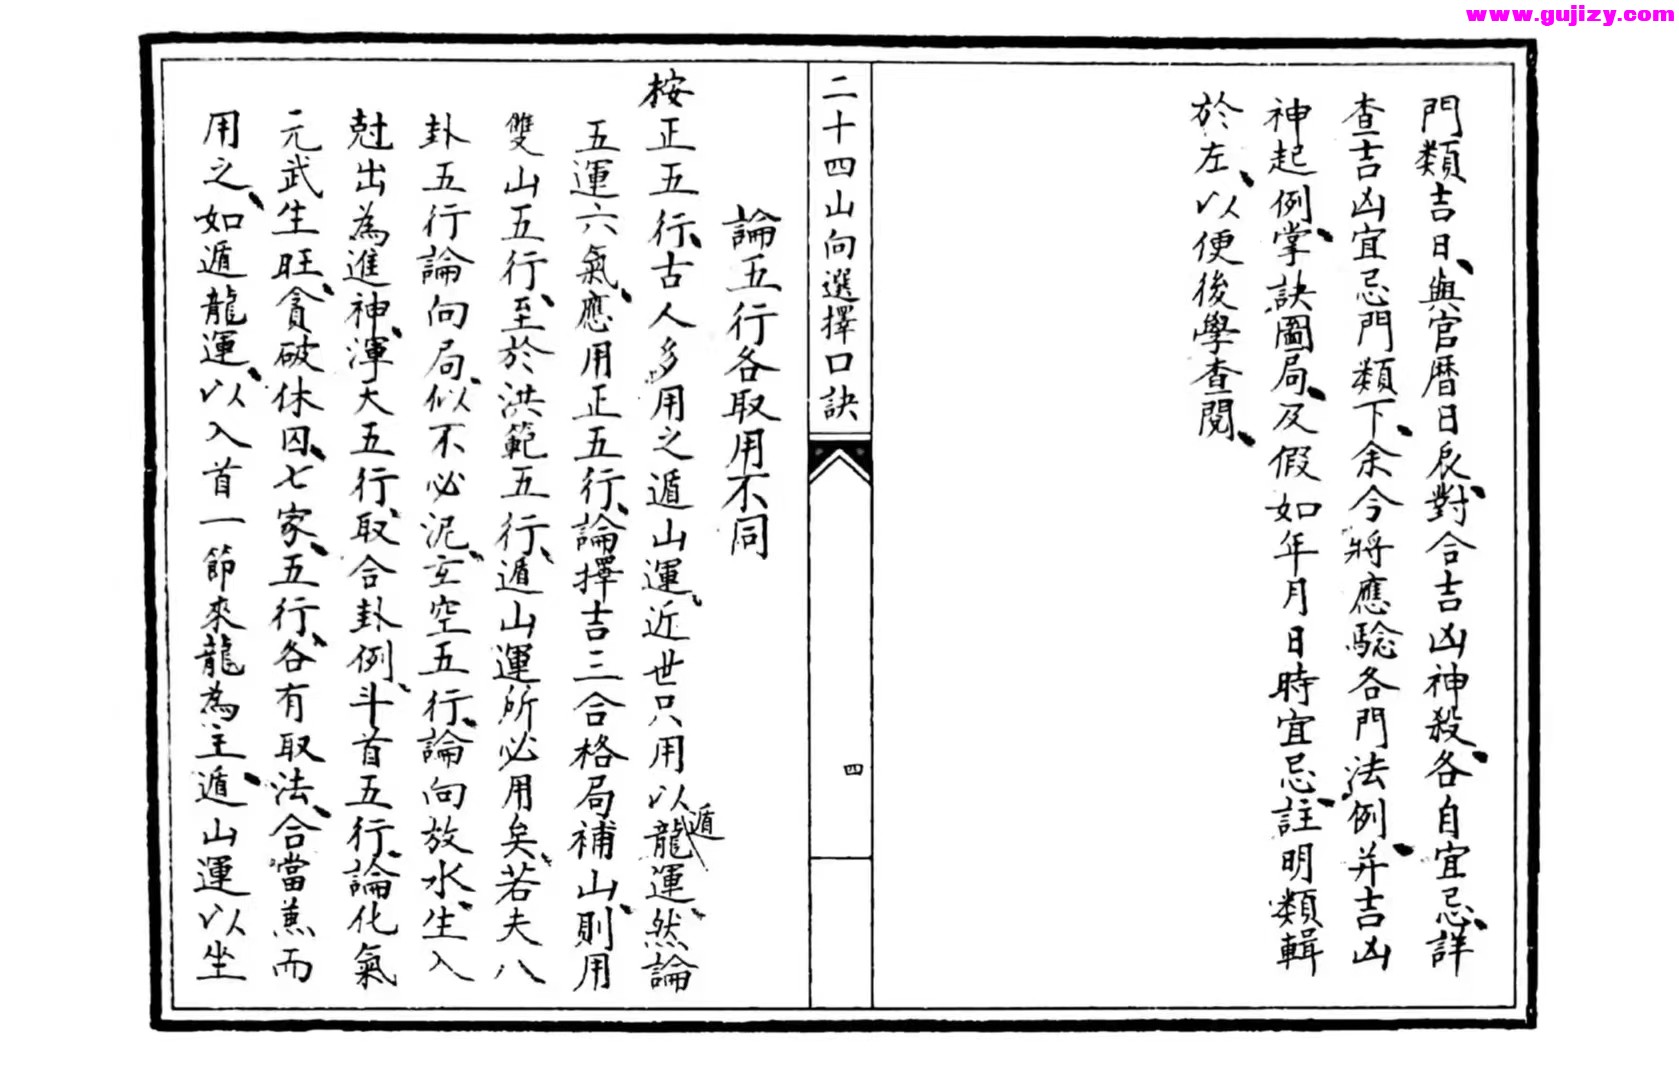 www.gujizy.com
門類吉日、與官曆日辰、對合吉凶神殺、各自宜忌、詳
查吉凶宜忌門類下、余今將應騐各門法例、并吉凶
神起例、掌訣圖局、及假如年月日時宜忌、註明類輯
於左、以便後學查閱、
二十四山向選擇口訣
四
論五行各取用不同
桉正五行、古人多用之遁山運、近世只用以遁龍運、然論
五運六氣、應用正五行、論擇吉三合格局補山、則用
雙山五行、至於洪範五行、遁山運所必用矣、若夫八
卦五行論向局、似不必泥、玄空五行、論向放水、生入
尅出為進神、渾天五行、取合卦例、斗首五行、論化氣
元武生旺、貪破休囚、七家、五行、各有取法、合當蕉而
用之、如遁龍運、以入首一節來龍為主、遁山運以坐